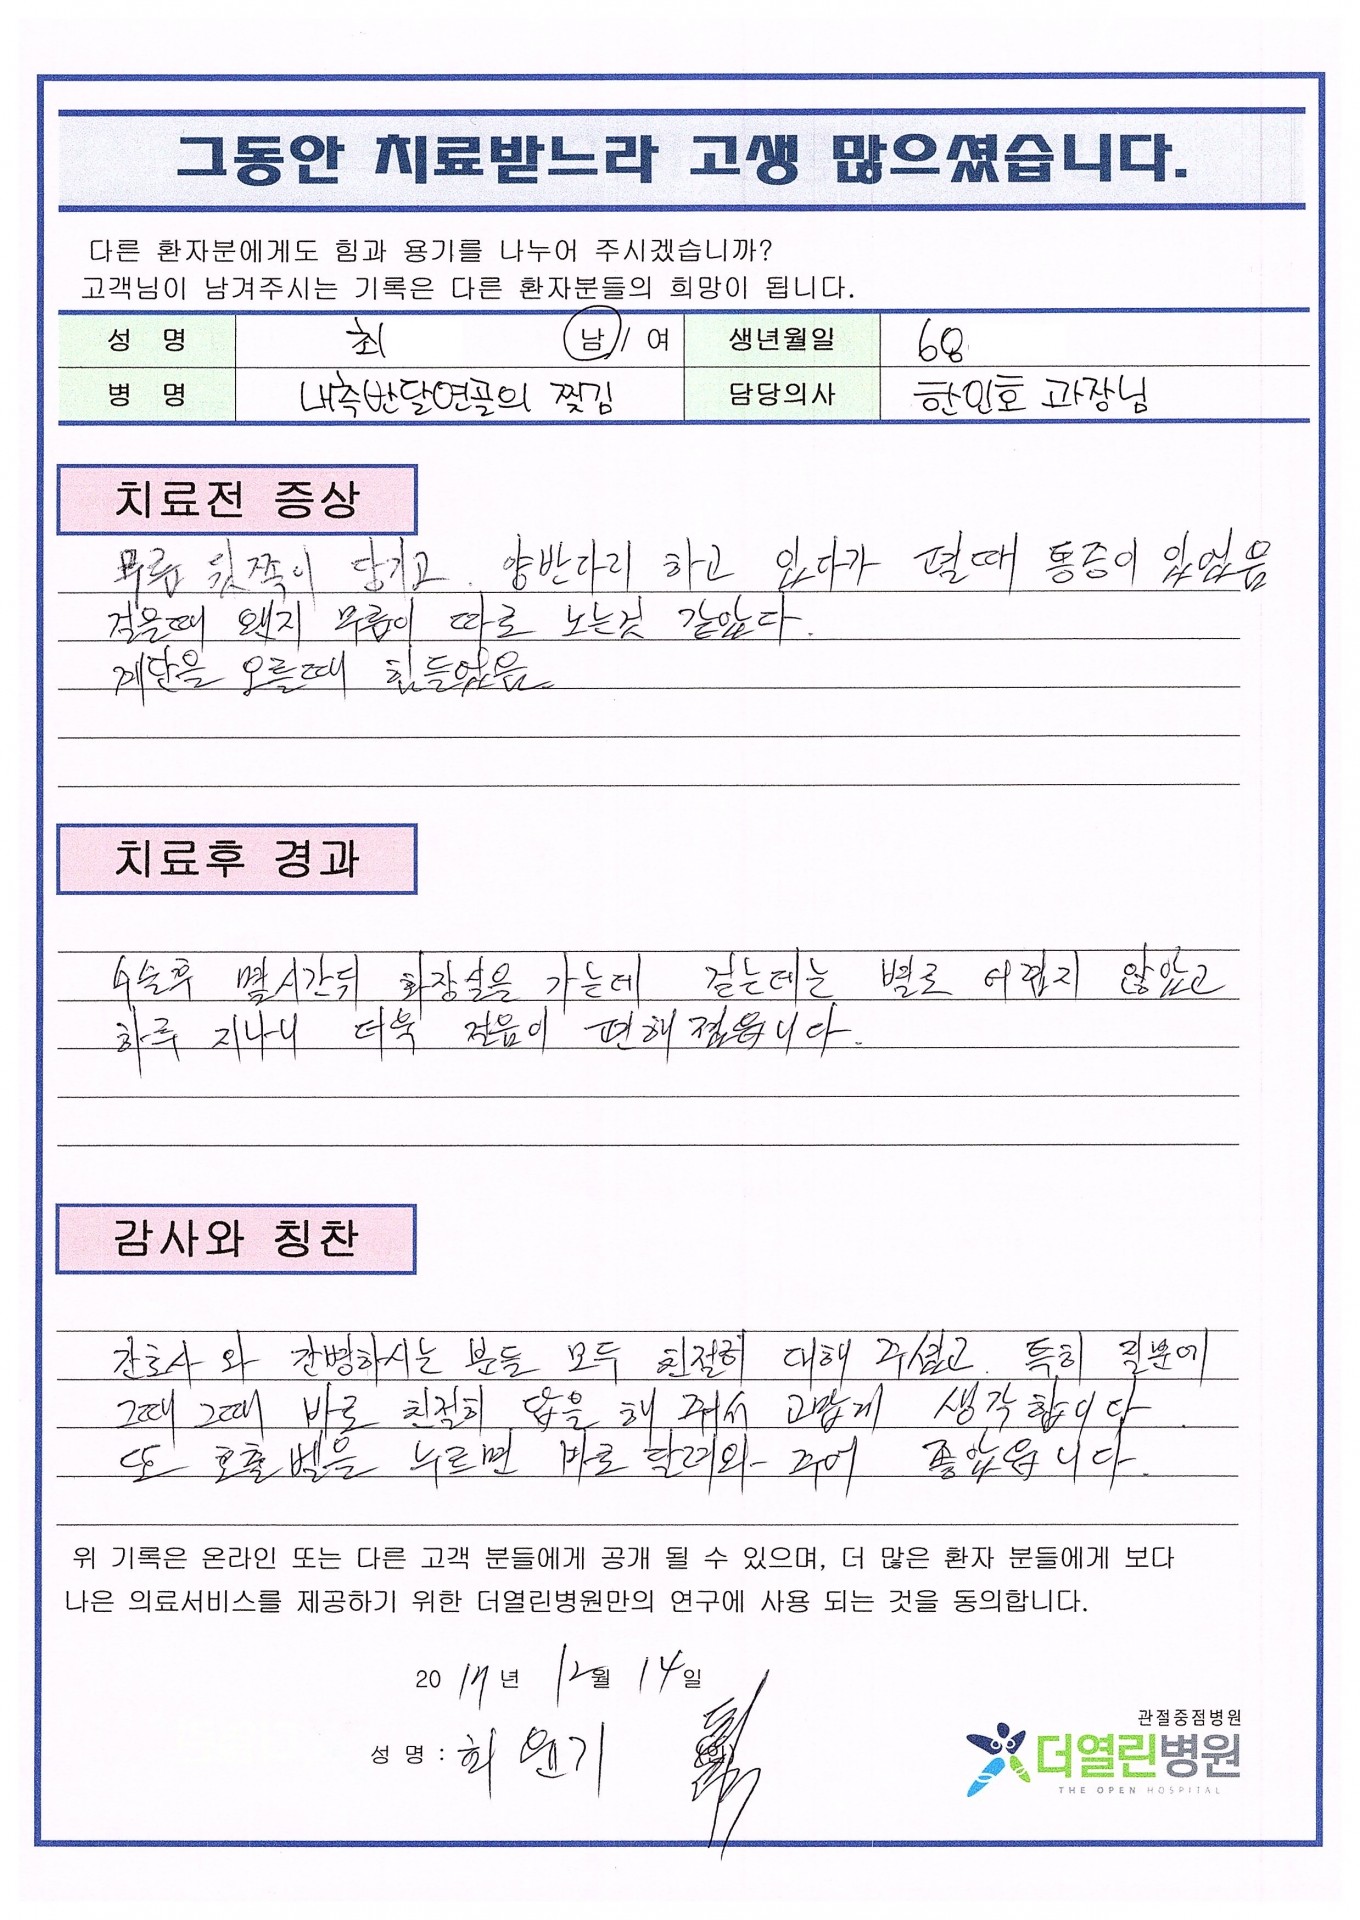 그동안 치료받느라 고생 많으셨습니다.
다른 환자분에게도 힘과 용기를 나누어 주시겠습니까?
고객님이 남겨주시는 기록은 다른 환자분들의 희망이 됩니다.
성 명 최 남 / 여 생년월일 68
병 명 내측반달연골의 찢김 담당의사 한민호 과장님
치료전 증상
무릎 뒷쪽이 당기고. 양반다리 하고 있다가 펼때 통증이 있었음
걸을때 왠지 무릎이 따로 노는것 같았다.
계단을 오를때 힘들었음.
치료후 경과
수술후 몇시간뒤 화장실을 가는데 걷는데는 별로 어렵지 않았고
하루 지나니 더욱 걸음이 편해졌읍니다.
감사와 칭찬
간호사 와 간병하시는 분들 모두 친절히 대해 주셨고. 특히 질문에
그때 그때 바로 친절히 답을 해 줘서 고맙게 생각합니다.
또 호출벨을 누르면 바로 달려와 주어 좋았읍니다.
위 기록은 온라인 또는 다른 고객 분들에게 공개 될 수 있으며, 더 많은 환자 분들에게 보다
나은 의료서비스를 제공하기 위한 더열린병원만의 연구에 사용 되는 것을 동의합니다.
2017년 12월 14일
성 명 : 최 윤기
관절중점병원
더열린병원
THE OPEN HOSPITAL